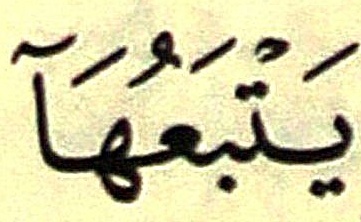 يَتْبَعُهَآ